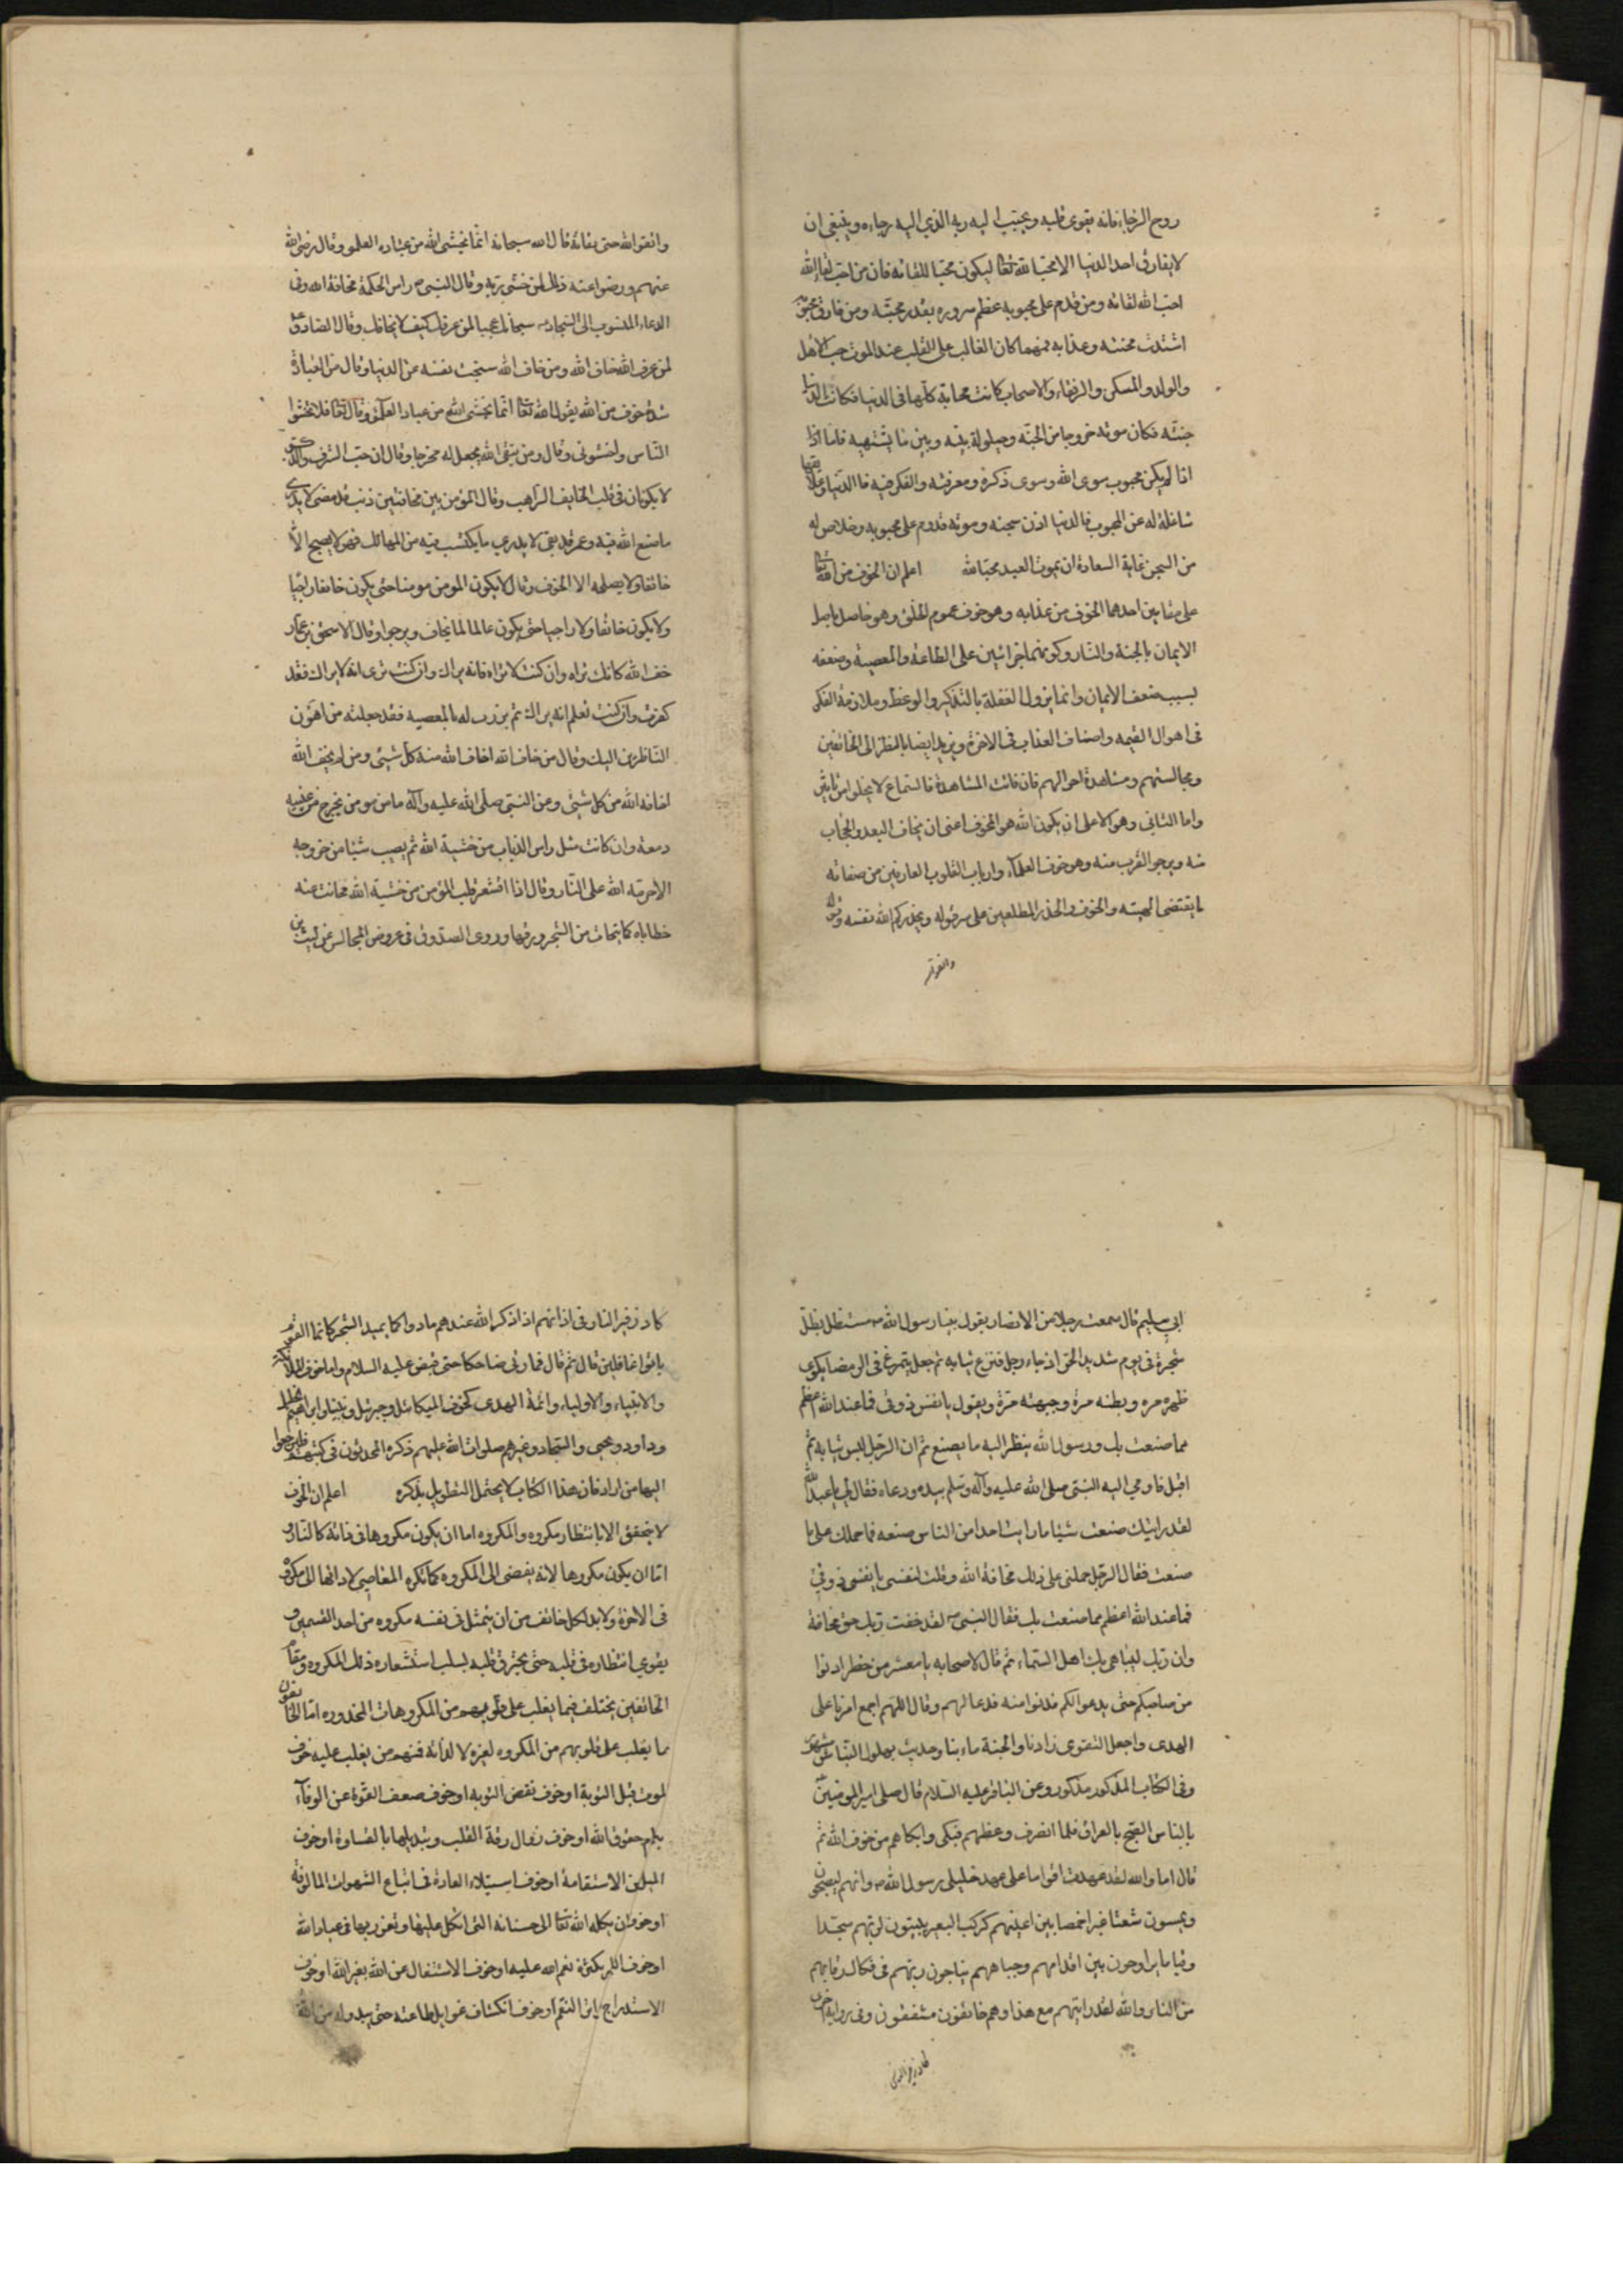 روح الرجاء فانه يقوى قلبه ويحبب اليه ربه الذي اليه رجاءه وينبغى ان
لا يفارق احد الدنيا الا محبا لله تعالى ليكون محبا للقائه فان من احب لقاء الله
احب الله لقائه ومن قدم على محبوبه عظم سروره بقدر محبته ومن فارق محبوبه
اشتدت محنته وعذابه فمهما كان الغالب على القلب عند الموت حب الاهل
والولد والمسكن والرفقاء والاصحاب كانت محابه كلها فى الدنيا فكانت الدنيا
جنته فكان موته خروجا من الجنة وحيلولة بينه وبين ما يشتهيه فاما اذا
اذا لم يكن محبوب سوى الله وسوى ذكره ومعرفته والفكر فيه فالدنيا وعلائقها
شاغلة له عن المحبوب فالدنيا اذن سجنه وموته قدوم على محبوبه وخلاص له
من السجن فغاية السعادة ان يموت العبد محبا لله اعلم ان الخوف من الله تعالى
على مقامين احدهما الخوف من عذابه وهو خوف عموم الخلق وهو حاصل باصل
الايمان بالجنة والنار وكونهما جزائين على الطاعة والمعصية وضعفه
بسبب ضعف الايمان وانما يزول الغفلة بالتذكير والوعظ وملازمة الفكر
فى اهوال القيمه واصناف العذاب فى الاخرة ويزيد ايضا بالنظر الى الخائفين
ومجالستهم ومشاهدة احوالهم فان فاتت المشاهدة فالسماع لا يخلو من تاثير
واما الثانى وهو الاعلى ان يكون الله هو المخوف اعنى ان يخاف البعد والحجاب
منه ويرجو القرب منه وهو خوف العلماء وارباب القلوب العارفين من صفاته
ما يقتضى الهيبة والخوف والحذر المطلعين على سر قوله ويحذركم الله نفسه وقوله
واتقوا
واتقوا الله حق تقاته قال الله سبحانه انما يخشى الله من عباده العلمو وقال رضى الله
عنهم ورضوا عنه ذلك لمن خشى ربه وقال النبى ص راس الحكمة مخافة الله وفى
الدعاء المنسوب الى السجاد سبحانك عجبا لمن عرفك كيف لا يخافك وقال الصادق ع
من عرف الله خاف الله ومن خاف الله سخت نفسه عن الدنيا وقال من العبادة
شدة خوف من الله يقول الله تعالى انما يخشى الله من عباده العلمؤ وقال تعالى فلا تخشوا
الناس واخشونى وقال ومن يتق الله يجعل له مخرجا وقال ان حب الشرف والذكر
لا يكونان فى قلب الخايف الراهب وقال المؤمن بين مخافتين ذنب قد مضى لا يدرى
ما صنع الله فيه وعمر قد بقى لا يدرى ما يكتسب فيه من المهالك فهو لا يصبح الا
خائفا ولا يصلحه الا الخوف وقال لا يكون المومن مومنا حتى يكون خائفا راجيا
ولا يكون خائفا ولا راجيا حتى يكون عالما لما يخاف ويرجو وقال لاسحق بن عمار
خف الله كانك تراه وان كنت لا تراه فانه يراك وان كنت ترى انه لا يراك فقد
كفرت وان كنت تعلم انه يراك ثم برزت له بالمعصيه فقد جعلته من اهون
الناظرين اليك وقال من خاف الله اخاف الله منه كل شىء ومن لم يخف الله
اخافه الله من كل شىء وعن النبى صلى الله عليه وآله ما من مومن يخرج من عينيه
دمعة وان كانت مثل راس الذباب من خشية الله ثم يصيب شيئا من حر وجهه
الا حرمه الله على النار وقال اذا اقشعر قلب المؤمن من خشية الله تحاتت عنه
خطاياه كما يتحات من الشجر ورقها وروى الصدوق فى عروض المجالس عن ليث بن
ابى سليم قال سمعت رجلا من الانصار يقول بينا رسول الله ص مستظل بظل
شجرة فى يوم شديد الحر اذ جاء رجل فنزع ثيابه ثم جعل يتمرغ فى الرمضا يكوى
ظهره مره وبطنه مرة وجبهته مرة ويقول يا نفس ذوقى فما عند الله اعظم
مما صنعت بك ورسول الله ينظر اليه ما يصنع ثم ان الرجل لبس ثيابه ثم
اقبل فاومى اليه النبى صلى الله عليه وآله وسلم بيده ودعاه فقال له يا عبد الله
لقد رايتك صنعت شيئا ما رايت احدا من الناس صنعه فما حملك على ما
صنعت فقال الرجل حملنى على ذلك مخافة الله وقلت لنفسى يا نفس ذوقى
فما عند الله اعظم مما صنعت بك فقال النبى ص لقد خفت ربك حق مخافة
وان ربك ليباهى بك اهل السماء ثم قال لاصحابه يا معشر من حضر ادنوا
من صاحبكم حتى يدعو لكم فدنوا منه فدعا لهم وقال اللهم اجمع امرنا على
الهدى واجعل التقوى زادنا والجنة مابنا وحديث بهلول النباش مشهور
وفى الكتاب المذكور مذكور وعن الباقر عليه السلام قال صلى امير المومنين ع
بالناس الصبح بالعراق فلما انصرف وعظهم فبكى وابكاهم من خوف الله ثم
قال اما والله لقد عهدت اقواما على عهد خليلى رسول الله ص وانهم ليصبحون
ويمسون شعثا غبرا خمصا بين اعينهم كركب البعير يبيتون لربهم سجدا
وقياما يراوحون بين اقدامهم وجباههم يناجون ربهم فى فكاك رقابهم
من النار والله لقد رايتهم مع هذا وهم خائفون مشفقون وفى رواية اخرى
كاد زفير النار
كاد زفير النار فى اذانهم اذا ذكر الله عندهم مادوا كما يميد الشجر كانما القوم
باتوا غافلين قال ثم قال فما رئى ضاحكا حتى قبض عليه السلام واما خوف الملائكة
والانبياء والاولياء وائمة الهدى كخوف الميكائيل وجبرئيل ونبينا وابراهيم خليل
وداود ويحيى والسجاد وغيرهم صلوات الله عليهم ذكره المحدثون فى كتبهم فليرجعوا
اليها من اراد فان هذا الكتاب لا يحتمل التطويل بذكره اعلم ان الخوف
لا يتحقق الا بانتظار مكروه والمكروه اما ان يكون مكروها فى ذاته كالنار و
اما ان يكون مكروها لانه يفضى الى المكروه كما تكره المعاصى لادائها الى مكروه
فى الاخرة ولا بد لكل خائف من ان يتمثل فى نفسه مكروه من احد القسمين و
يقوى انتظاره فى قلبه حتى يحترق قلبه بسبب استشعاره ذلك المكروه ومقام
الخائفين يختلف فيما يغلب على قلوبهم من المكروهات المحذوره اما الخائفون
ما يغلب على قلوبهم من المكروه لغيره لا لذاته فمنهم من يغلب عليه خوف
الموت قبل التوبة او خوف نقض التوبه او خوف ضعف القوة عن الوفاء
بتمام حقوق الله او خوف زوال رقة القلب وتبديلها بالقساوة او خوف
الميل عن الاستقامة او خوف استيلاء العادة فى اتباع الشهوات المالوفة
او خوف ان يكله الله تعالى الى حسناته التى اتكل عليها وتعزز بها فى عباد الله
او خوف البطر بكثرة نعم الله عليه او خوف الاشتغال عن الله بغير الله او خوف
الاستدراج بتواتر النعم او خوف انكشاف غوايل طاعته حتى يبدو له من الله